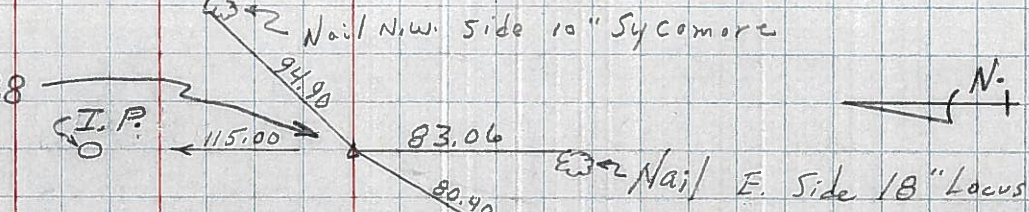 Nail N.W. Side 10" Sycamore
94.90
N.
8
I.P.
115.00
83.06
Nail E. Side 18" Locus
80.40